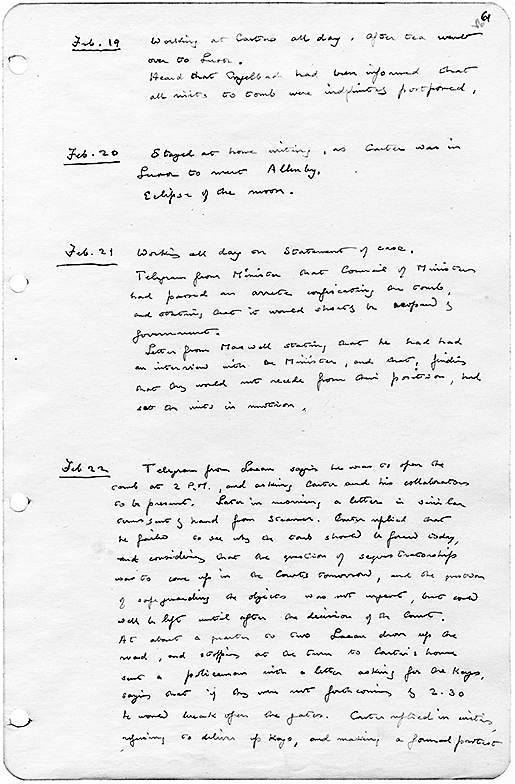 61
Feb. 19 Working at Carter's all day. After tea went
over to Luxor.
Heard that Engelbach had been informed that
all visits to tomb were indefinitely postponed.
Feb. 20 Stayed at home writing, as Carter was in
Luxor to meet Allenby.
Eclipse of the moon.
Feb. 21 Working all day on Statement of case.
Telegram from Minister that Council of Ministers
had passed an arrete confiscating the tomb,
and stating that it would shortly be reopened by
Government.
Letter from Maxwell stating that he had had
an interview with the Minister, and that, finding
that they would not recede from their position, had
set the writs in motion.
Feb 22 Telegram from Lacau saying he was to open the
tomb at 2 P.M., and asking Carter and his collaborators
to be present. Later in morning a letter in similar
terms sent by hand from steamer. Carter replied that
he failed to see why the tomb should be forced today,
and considering that the question of sequestratorship
was to come up in the Courts tomorrow, and the question
of safeguarding the objects was not urgent, but could
well be left until after the decision of the Court.
At about a quarter to two Lacau drove up the
road, and stopping at the turn to Carter's house
sent a policeman with a letter asking for the keys,
saying that if they were not forthcoming by 2.30
he would break open the gates. Carter replied in writing,
refusing to deliver up keys, and making a formal protest